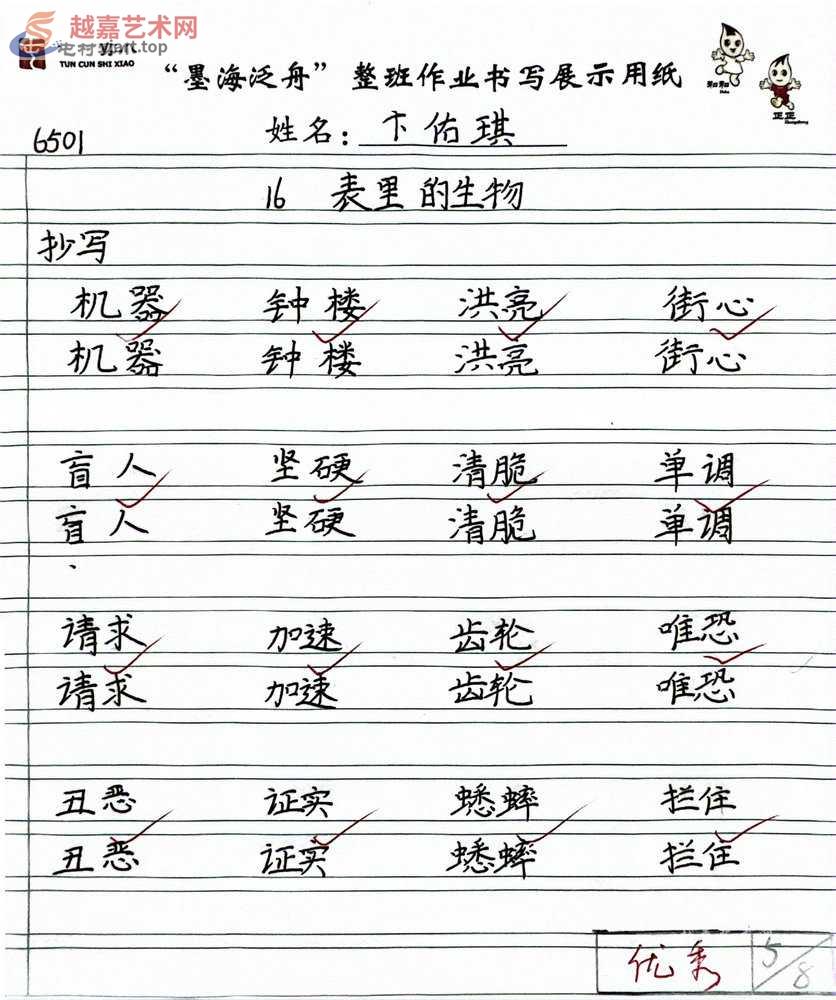 越嘉艺术网
yjart.top
TUN CUN SHI XIAO
“墨海泛舟”整班作业书写展示用纸
6501 姓名：卞佑琪
16 表里的生物
抄写
机器 钟楼 洪亮 街心
机器 钟楼 洪亮 街心
盲人 坚硬 清脆 单调
盲人 坚硬 清脆 单调
请求 加速 齿轮 唯恐
请求 加速 齿轮 唯恐
丑恶 证实 蟋蟀 拦住
丑恶 证实 蟋蟀 拦住
优秀 5/8